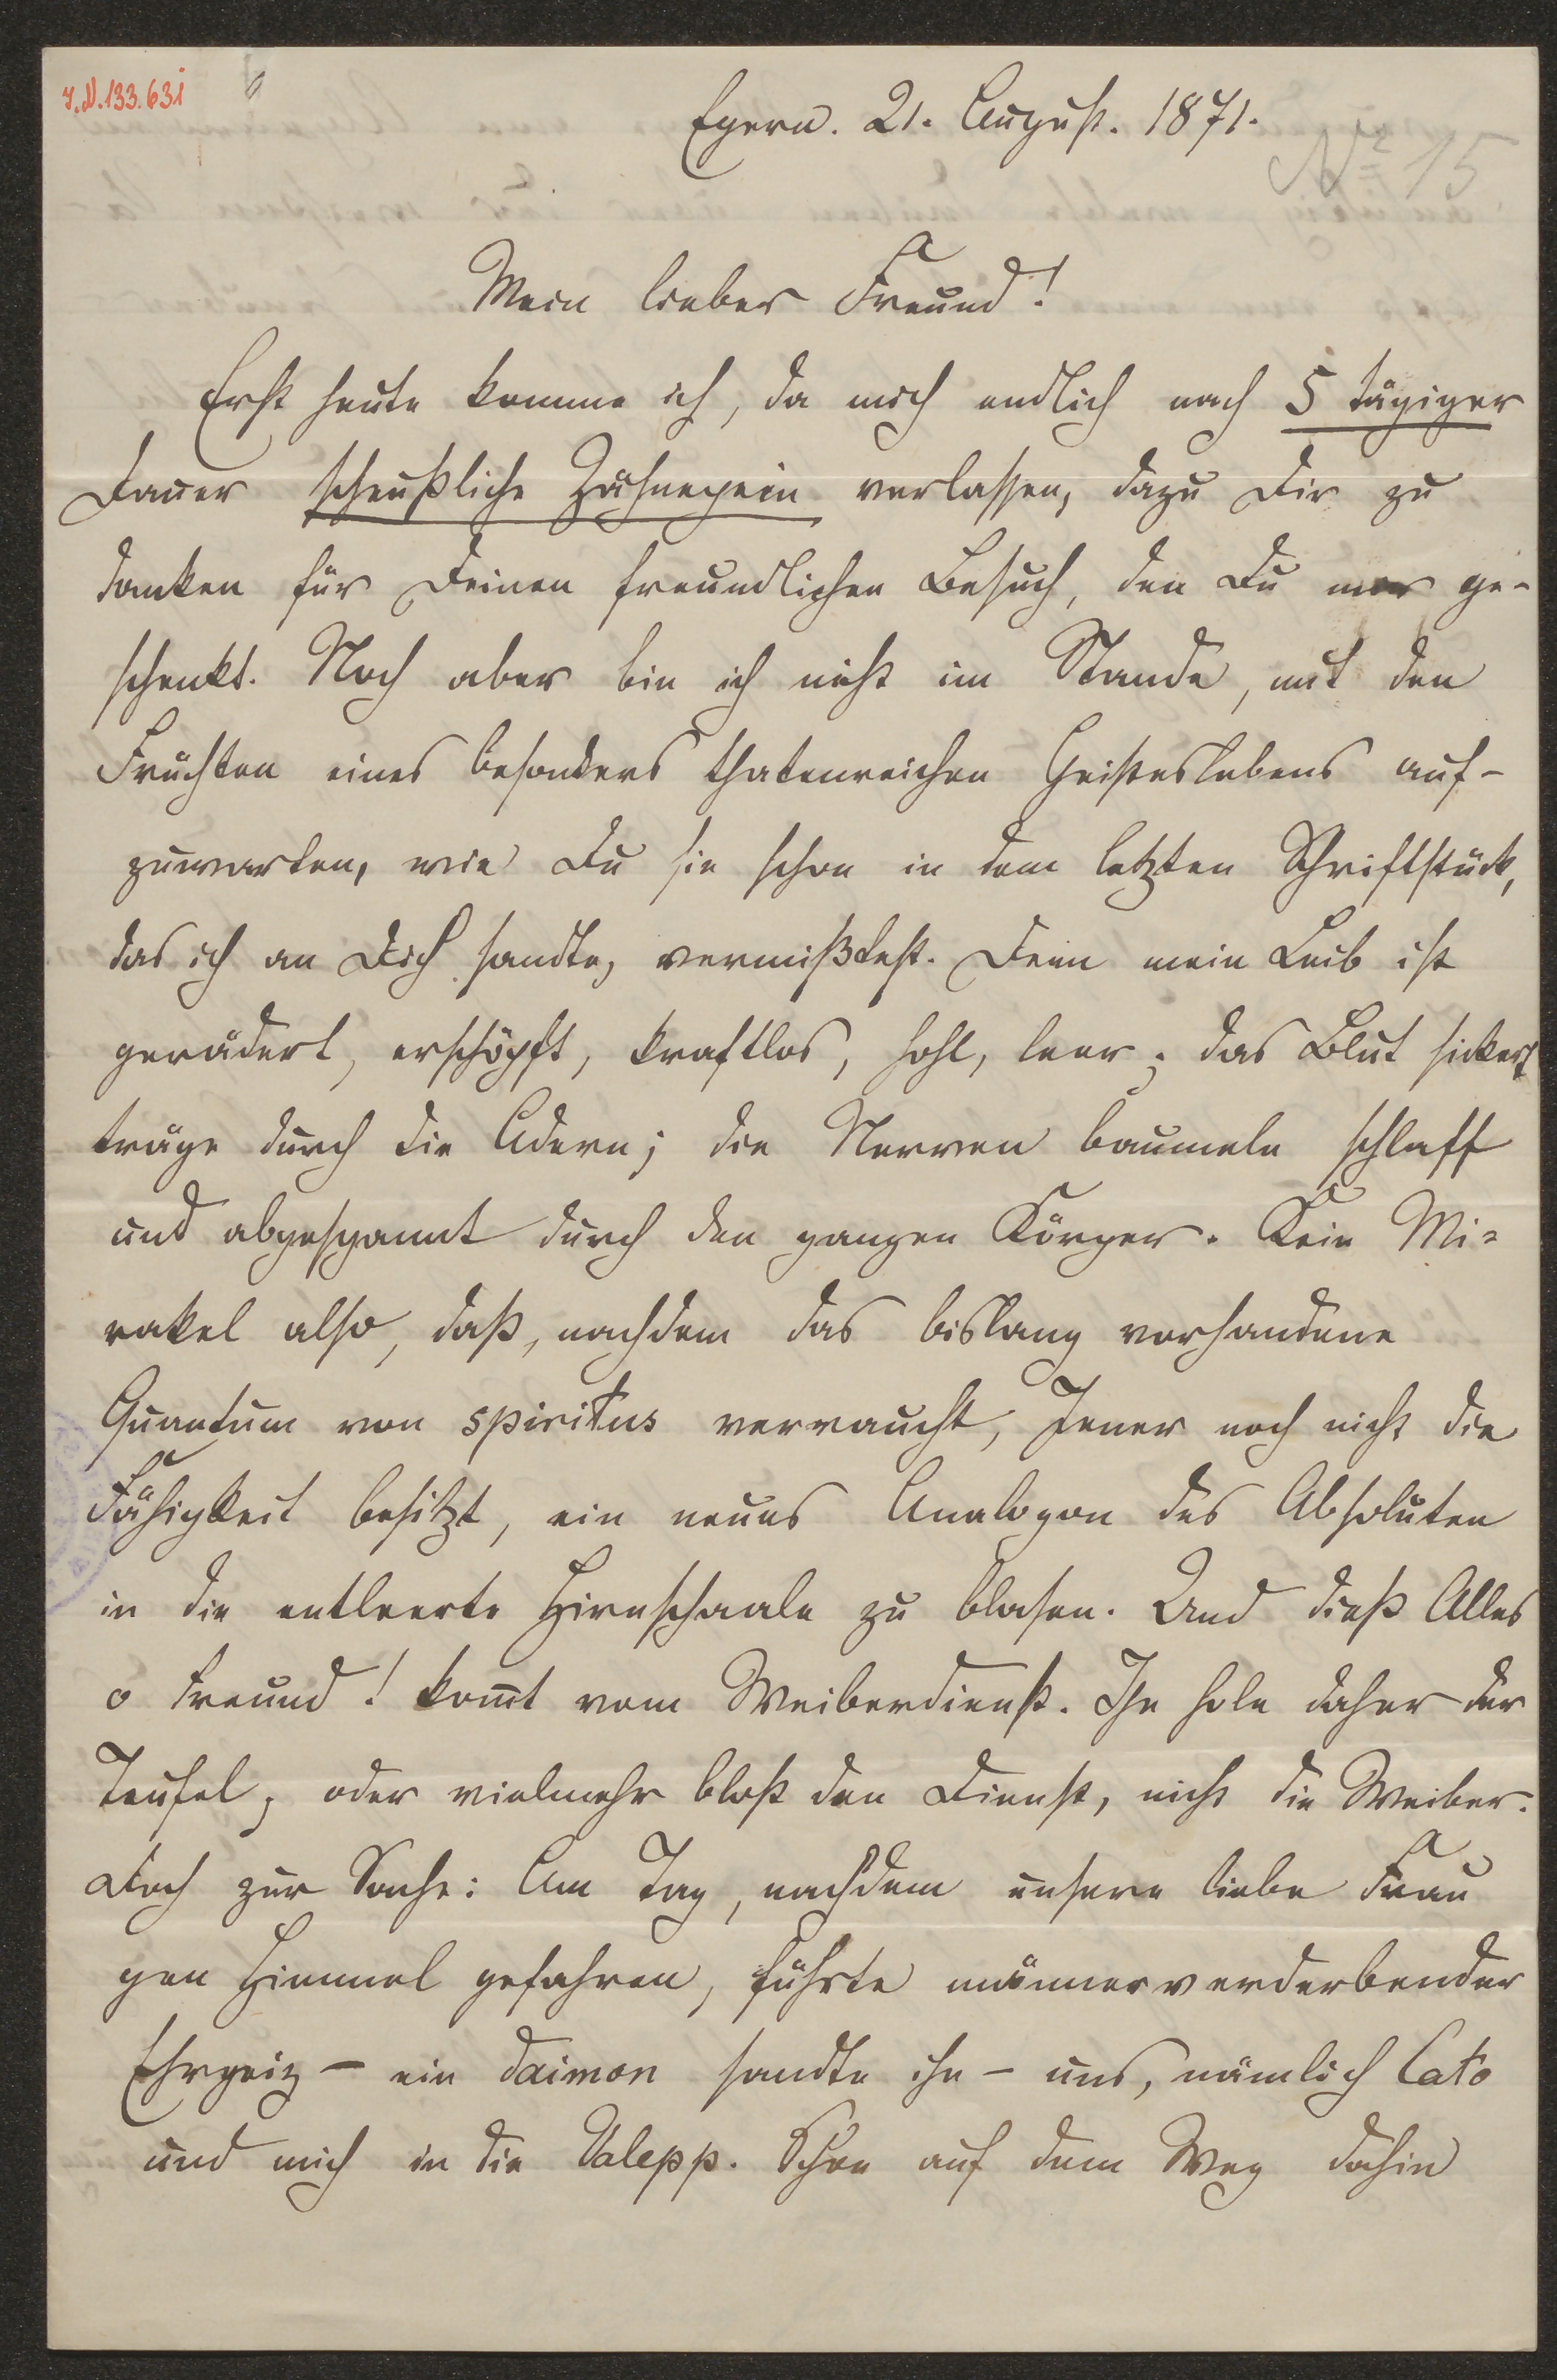 I.N. 133.631
Egern. 21. August. 1871.
Nr 15
Mein lieber Freund!
Erst heute komme ich, da mich endlich nach 5 tägiger
Dauer scheußliche Zahnepein verlassen, dazu Dir zu
danken für Deinen freundlichen Besuch, den Du mir ge-
schenkt. Noch aber bin ich nicht im Stande, mit den
Früchten eines besonders thatenreichen Geisteslebens auf-
zuwarten, wie Du sie schon in dem letzten Schriftstück,
das ich an Dich sandte, vermißtest. Denn mein Leib ist
gerädert, erschöpft, kraftlos, hohl, leer; das Blut sickert
träge durch die Adern; die Nerven baumeln schlaff
und abgespannt durch den ganzen Körper. Kein Mi-
rakel also, daß, nachdem das bislang vorhandene
Quantum von spiritus verraucht, Jener noch nicht die
Fähigkeit besitzt, ein neues Analogon des Absoluten
in die entleerte Hirnschaale zu blasen. Und dieß Alles
o Freund! komt vom Weiberdienst. Ihn hole daher der
Teufel, oder vielmehr bloß den Dienst, nicht die Weiber.
Doch zur Sache: Am Tag, nachdem unsere liebe Frau
gen Himmel gefahren, führte männerverderbender
Ehrgeiz – ein Daimon sandte ihn – uns, nämlich Cato
und mich in die Valepp. Schon auf dem Weg dahin